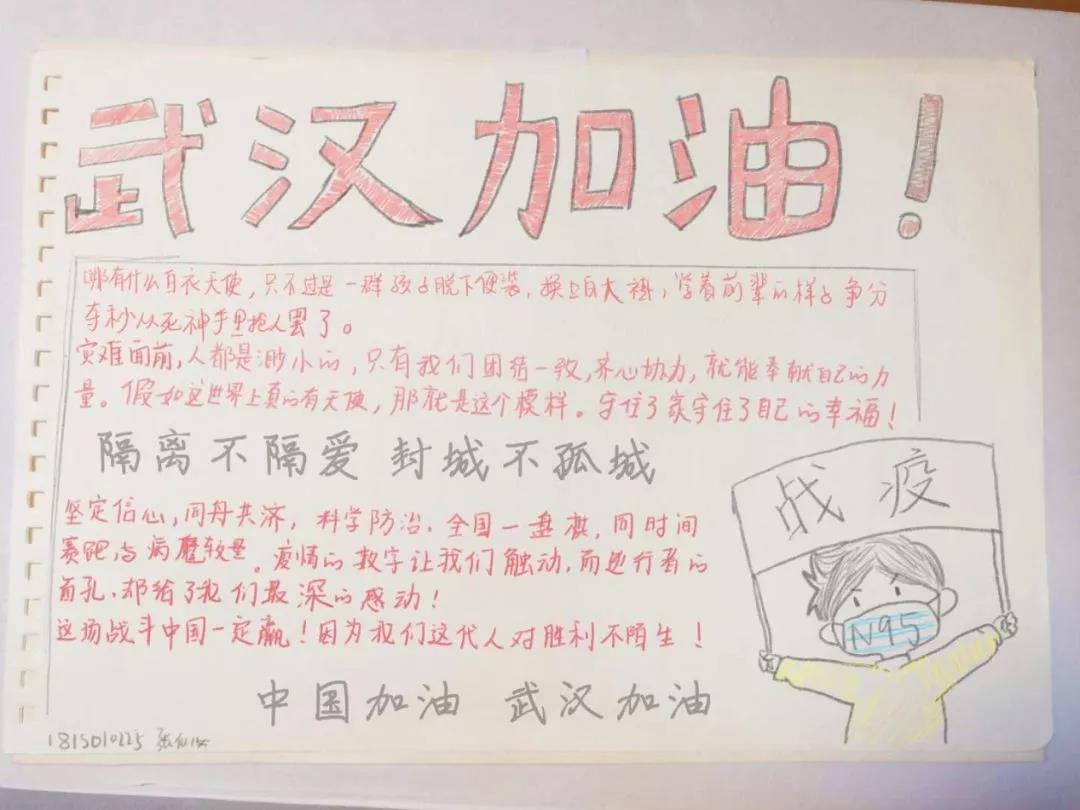 武汉加油！
哪有什么白衣天使，只不过是一群孩子脱下便装，换上白大褂，学着前辈的样子争分
夺秒从死神手里抢人罢了。
灾难面前，人都是渺小的，只有我们团结一致，齐心协力，就能奉献自己的力
量。假如这世界上真的有天使，那就是这个模样。守住了家守住了自己的幸福！
隔离不隔爱 封城不孤城
坚定信心，同舟共济，科学防治，全国一盘棋，同时间
赛跑与病魔较量。疫情的数字让我们触动，而逆行者的
面孔，都给了我们最深的感动！
这场战斗中国一定赢！因为我们这代人对胜利不陌生！
战疫
N95
中国加油 武汉加油
1815010225 张